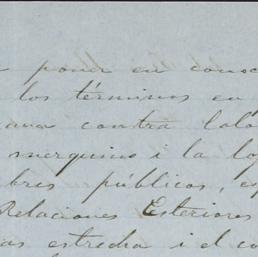 poner en conoc
los términos en
ana contra
mezquino i la
bres públicos, es
Relaciones Esteriores
as estrecha i el co